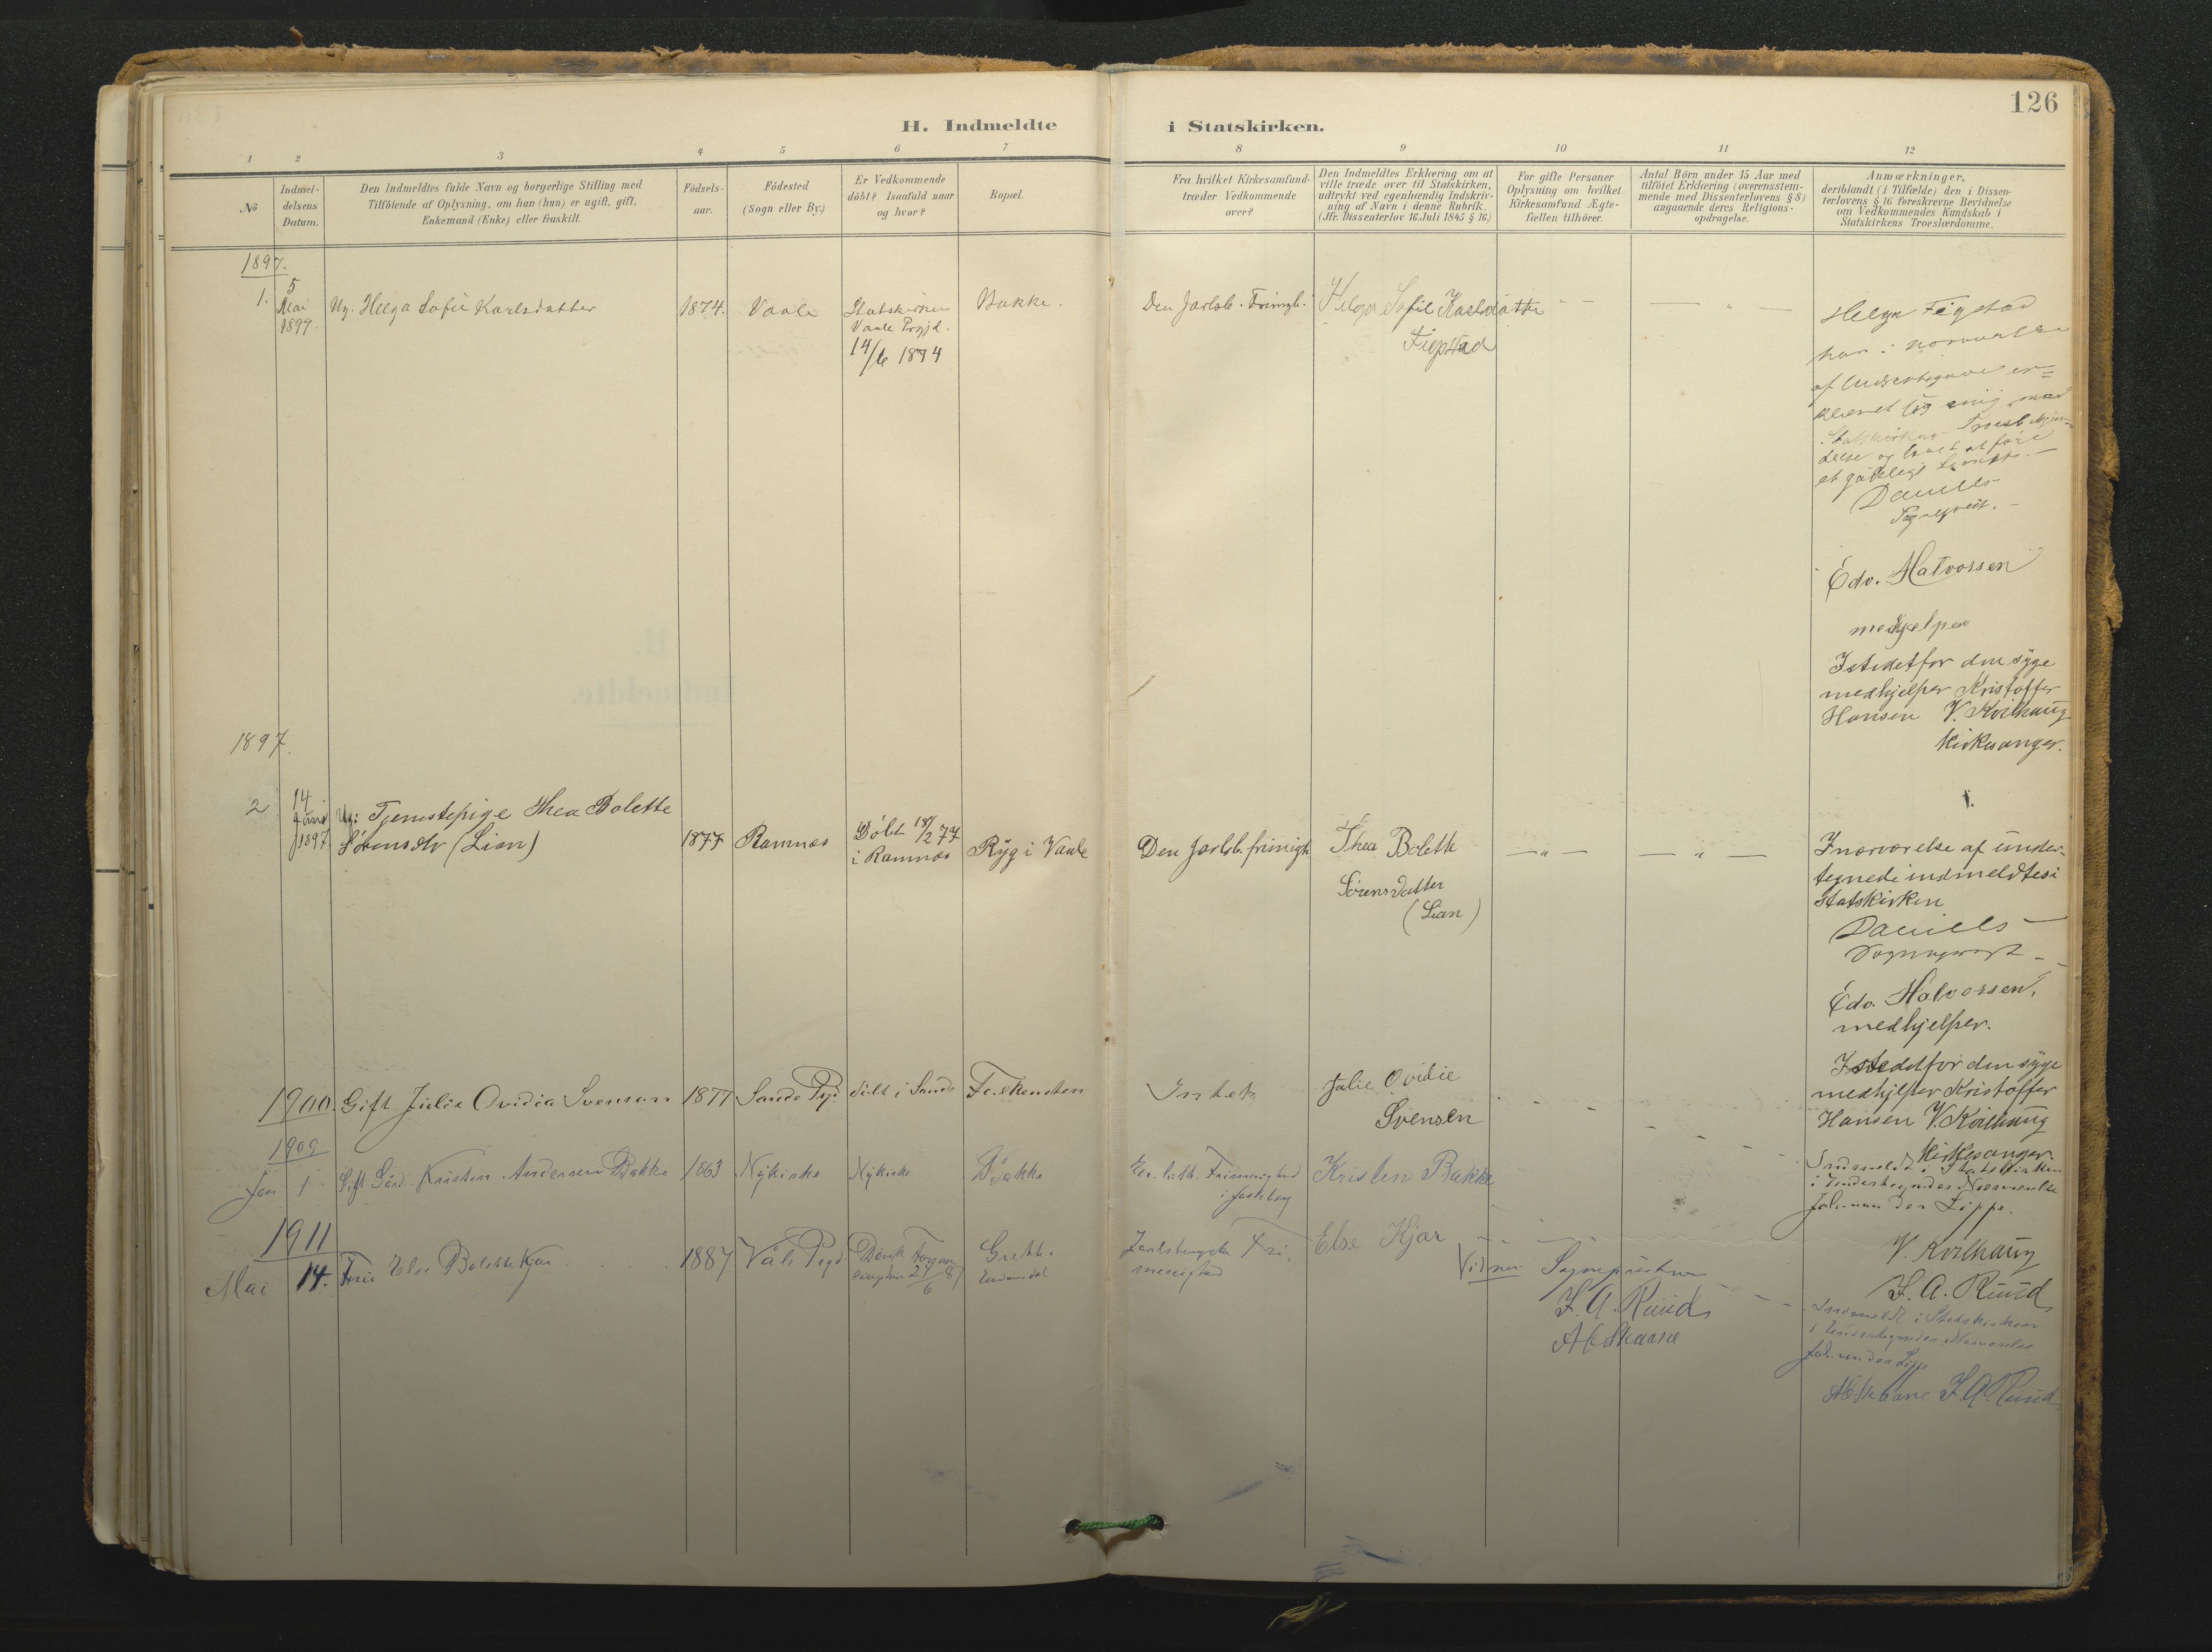 126
H. Indmeldte i Statskirken.
1 2 3 4 5 6 7 8 9 10 11 12
№
Indmel-
delsens
Datum.
Den Indmeldtes fulde Navn og borgerlige Stilling med
Tilföiende af Oplysning, om han (hun) er ugift, gift,
Enkemand (Enke) eller fraskilt.
Födsels-
aar.
Födested
(Sogn eller By.)
Er Vedkommende
döbt? Isaafald naar
og hvor?
Bopæl.
Fra hvilket Kirkesamfund-
træder Vedkommende
over?
Den Indmeldtes Erklæring om at
ville træde over til Statskirken,
udtrykt ved egenhændig Indskriv-
ning af Navn i denne Rubrik.
(Jfr. Dissenterlov 16. Juli 1845 § 16.)
For gifte Personer
Oplysning om hvilket
Kirkesamfund Ægte-
fællen tilhörer.
Antal Börn under 15 Aar med
tilföiet Erklæring (overensstem-
mende med Dissenterlovens § 8)
angaaende deres Religions-
opdragelse.
Anmærkninger,
deriblandt (i Tilfælde) den i Dissen-
terlovens § 16 foreskrevne Bevidnelse
om Vedkommendes Kundskab i
Statskirkens Troeslærdomme.
1897.
1.
5
Mai
1897.
Ug. Helga Sofie Karlsdatter
1874.
Vaale
Statskirken
Vaale
14/6 1874
Bakke.
Den Jarlsb. Frimgh.
Helga Sofie Karlsdatter
Figstad
Helga Figstad
har i nærværelse
af Undertegnede er=
klæret sig enig med
Statskirkens Troesbekjen-
delse og lovet at føre
et gudeligt Levnet.
Daniels
Sogneprest.
Edv. Halvorsen
medhjelper
Istedetfor den syge
medhjelper Kristoffer
Hansen V. Kvilhaug
Kirkesanger.
1897.
2
14
Juni
1897
Ug: Tjenestepige Thea Bolette
Sørensdtr (Lian)
1877
Ramnes
Døbt 18/2 77
i Ramnes
Ryg i Vaale
Den Jarlsb. frimigh
Thea Bolette
Sörensdatter
(Lian)
I nærværelse af under-
tegnede indmeldtes i
Statskirken
Daniels
Sogneprest
Edv. Halvorsen,
medhjelper.
Istedetfor den syge
medhjelper Kristoffer
Hansen V. Kvilhaug
Kirkesanger.
1900.
Gift Julie Ovidia Svensen
1877
Sande Pgd.
døbt i Sande
Falkensten
Intet
Julie Ovidie
Svensen
1909
Jan 1
Gift Gård. Kristen Andersen Bakke
1863
Nykirke
Nykirke
Bakke
Ev. luth. Frimenighed
i Jarlsberg
Kristen Bakke
Indmeldt i Statskirken
i Undertegnedes Nærværelse
Joh. von der Lippe.
V. Kvilhaug
F. A. Ruud
1911
Mai 14.
Fru Else Bolette Kjær
1887
Våle Pgd.
6
Jarlsbergske Fri-
menighed
Else Kjær
Vidner Sognepresten
F. A. Ruud
Indmeldt i Statskirken
i Undertegnedes Nærværelse
Joh. von der Lippe
F. A. Ruud